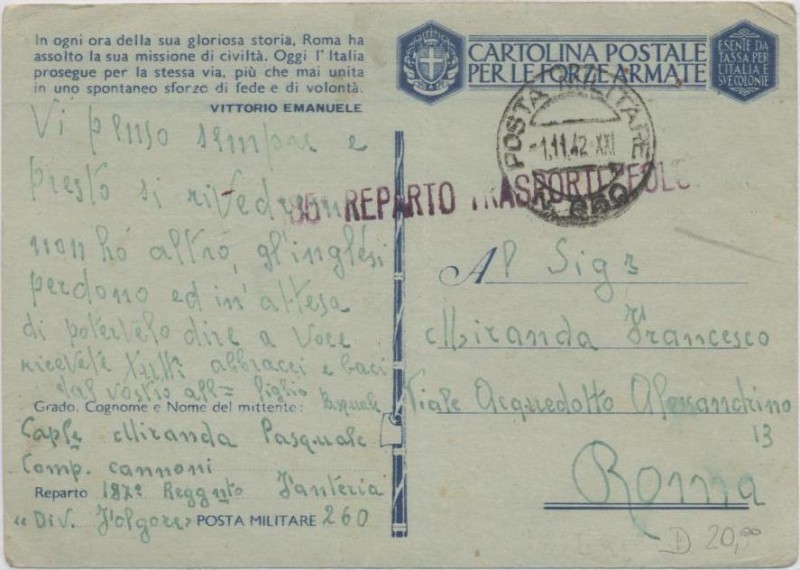 In ogni ora della sua gloriosa storia, Roma ha
assolto la sua missione di civiltà. Oggi l'Italia
prosegue per la stessa via, più che mai unita
in uno spontaneo sforzo di fede e di volontà.
VITTORIO EMANUELE
CARTOLINA POSTALE
PER LE FORZE ARMATE
ESENTE DA
TASSA PER
L'ITALIA E
SVE COLONIE
POSTA MILITARE
-1.11.42.XXI
REPARTO TRASPORTI
Vi penso sempre e
presto si rivedremo
non hó altro, gl'inglesi
perdono ed in'attesa
di potervelo dire a voce
ricevete tutti abbracci e baci
dal vostro aff= figlio Pasquale
Grado, Cognome e Nome del mittente:
Caple Miranda Pasquale
Comp. cannoni
Reparto 187° Reggnto Fanteria
"Div. Folgore" POSTA MILITARE 260
Al Sigr
Miranda Francesco
Viale Acquedotto Alessandrino
13
Roma
D 20,00